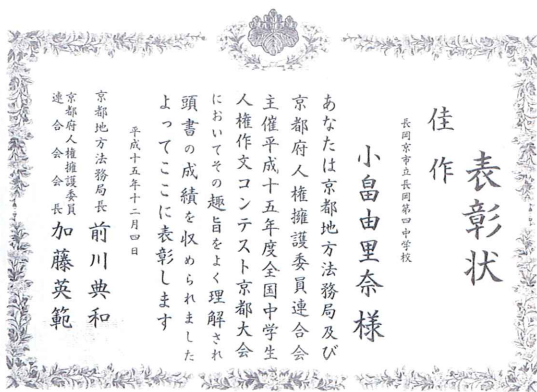 表彰状
佳作
長岡京市立長岡第四中学校
小畠由里奈様
あなたは京都地方法務局及び
京都府人権擁護委員連合会
主催平成十五年度全国中学生
人権作文コンテスト京都大会
においてその趣旨をよく理解され
頭書の成績を収められました
よってここに表彰します
平成十五年十二月四日
京都地方法務局長 前川典和
京都府人権擁護委員
連合会会長 加藤英範